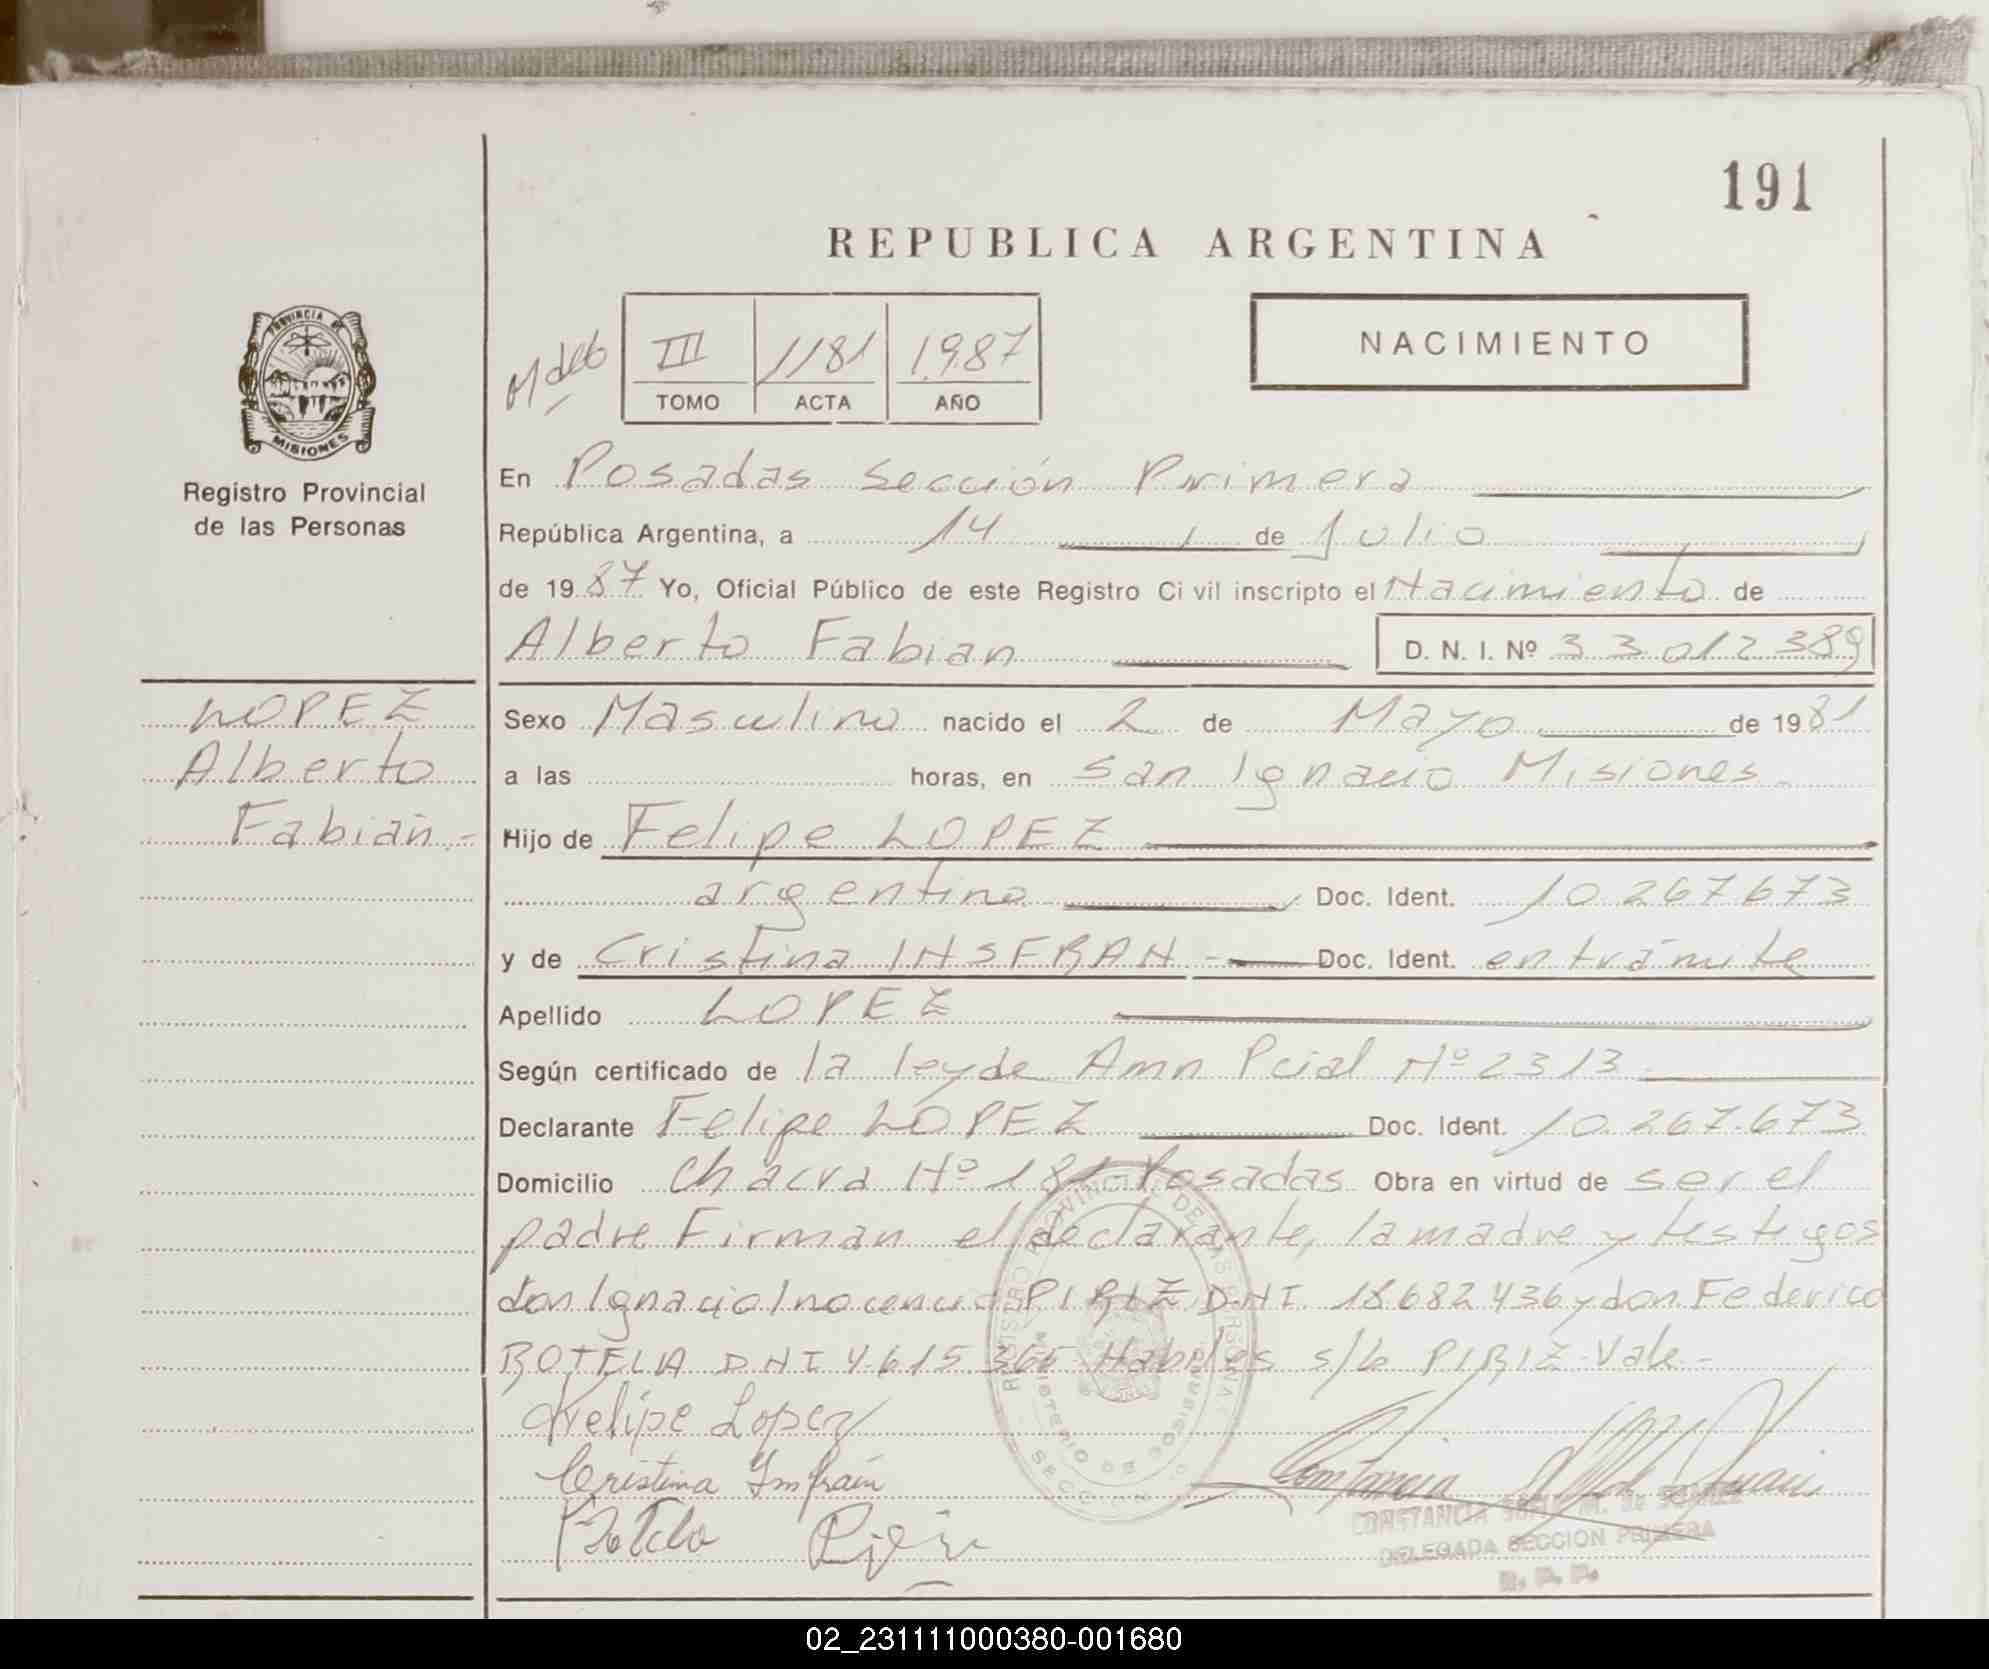 191
REPUBLICA ARGENTINA
III 1181 1987
TOMO ACTA AÑO
NACIMIENTO
PROVINCIA DE
MISIONES
Registro Provincial
de las Personas
En Posadas Sección Primera
República Argentina, a 14 de Julio
de 1987 Yo, Oficial Público de este Registro Civil inscripto el Nacimiento de
Alberto Fabian D. N. I. Nº 33012389
LOPEZ
Alberto
Fabian.-
Sexo Masculino nacido el 2 de Mayo de 1981
a las horas, en San Ignacio Misiones
Hijo de Felipe LOPEZ
argentino Doc. Ident. 10.267.673
y de Cristina INSFRAN - Doc. Ident. en trámite
Apellido LOPEZ
Según certificado de la ley de Amn Pcial Nº 2313
Declarante Felipe LOPEZ Doc. Ident. 10.267.673
Domicilio Chacra Nº 181 Posadas Obra en virtud de ser el
padre Firman el declarante, la madre y testigos
don Ignacio Inocencio PIRIZ DNI. 18.682.436 y don Federico
BOTELA DNI 4.615 Habiles s/b PIRIZ-Vale-
Felipe Lopez
Cristina Insfrán
Botela
CONSTANCIA M. de SUAREZ
DELEGADA SECCION PRIMERA
R. P. P.
02_231111000380-001680